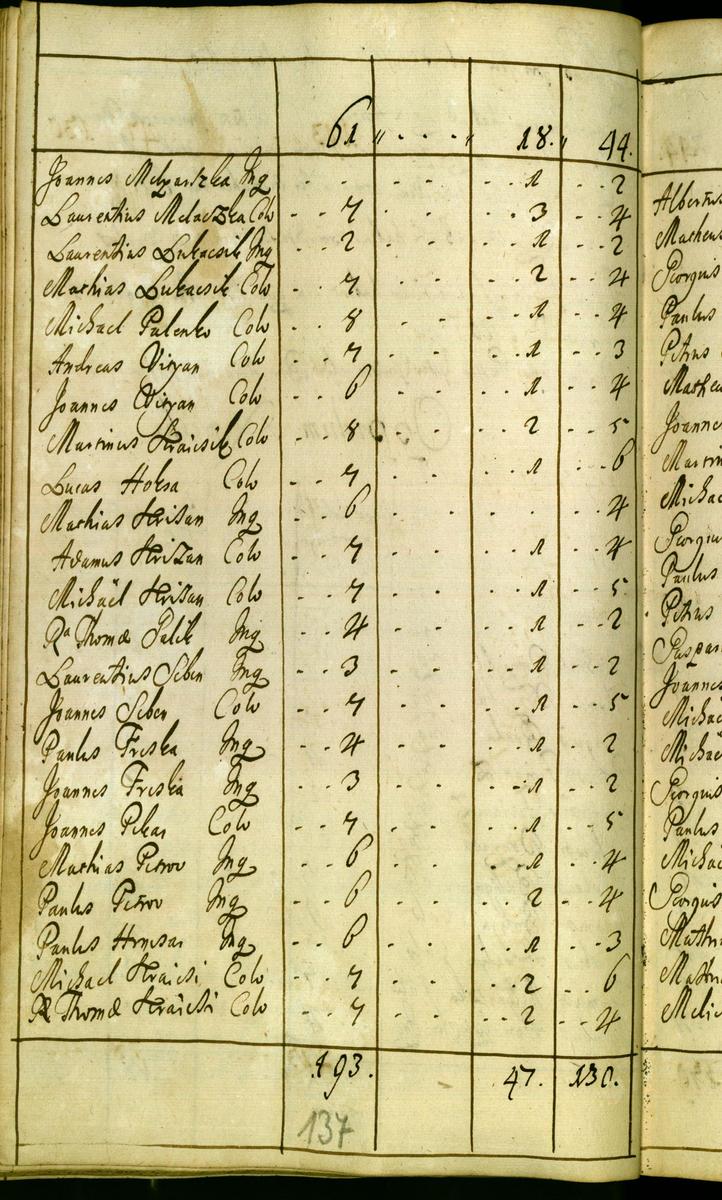 61 " . . . . " 18. " 44.
Joannes Melzarszka Inq - - - 1 - - 2
Laurentius Melaczka Colo - - 7 - - 3 - - 4
Laurentius Lukacsik Inq - - 2 - - 1 - - 2
Mathias Lukacsik Colo - - 7 - - 2 - - 4
Michael Palenko Colo - - 8 - - 1 - - 4
Andreas Viryan Colo - - 7 - - 1 - - 3
Joannes Viryan Colo - - 6 - - 1 - - 4
Martinus Kraicsik Colo - - 8 - - 2 - - 5
Lucas Hoksa Colo - - 7 - - 1 - - 6
Mathias Krisan Inq - - 6 - - - - 4
Adamus Krizan Colo - - 7 - - 1 - - 4
Michaël Krisan Colo - - 7 - - 1 - - 5
Ra Thomæ Palik Inq - - 4 - - 1 - - 2
Laurentius Seben Inq - - 3 - - 1 - - 2
Joannes Seben Colo - - 7 - - 1 - - 5
Paulus Freska Inq - - 4 - - 1 - - 2
Joannes Freska Inq - - 3 - - 1 - - 2
Joannes Pekar Colo - - 7 - - 1 - - 5
Mathias Petrov Inq - - 6 - - 1 - - 4
Paulus Petrov Inq - - 6 - - 2 - - 4
Paulus Hrncsar Inq - - 6 - - 1 - - 3
Michael Kraicsi Colo - - 7 - - 2 - - 6
Ra Thomæ Kraicsi Colo - - 7 - - 2 - - 4
193. 47. 130.
137
Albertus
Matheus
Georgius
Paulus
Petrus
Mathe
Joanne
Martin
Michae
Georgiu
Paulus
Petrus
Gaspar
Joannes
Michae
Michae
Georgius
Paulus
Michae
Georgius
Mathi
Mathi
Melic